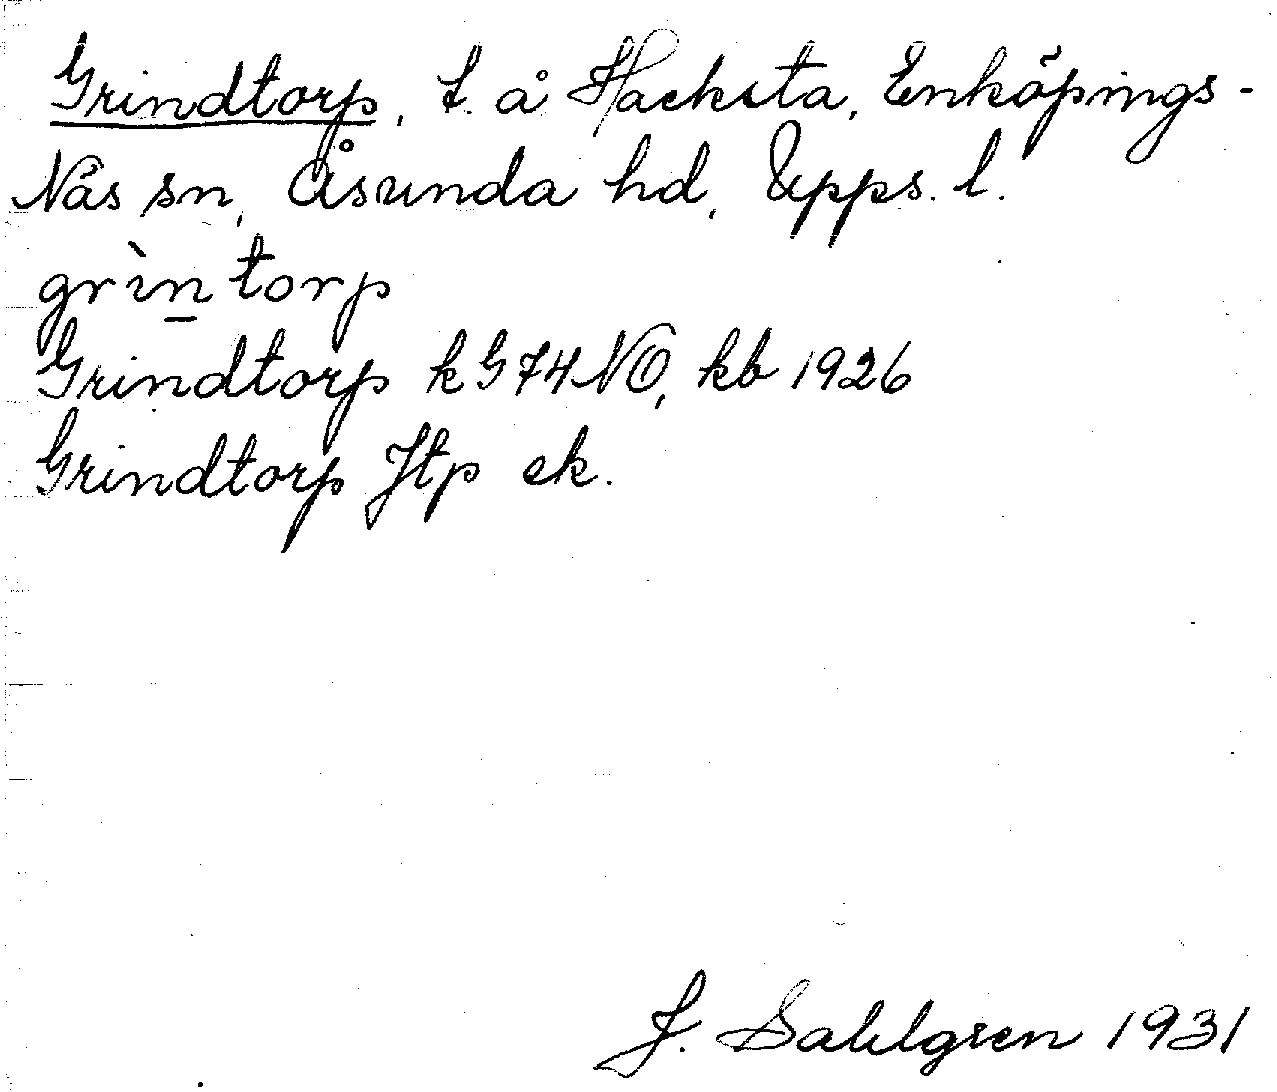 Grindtorp, t. å Hacksta, Enköpings-
Näs sn, Åsunda hd, Upps. l.
grìn̲torp
Grindtorp k G74NO, kb 1926
Grindtorp Jtp ek.
J. Sahlgren 1931